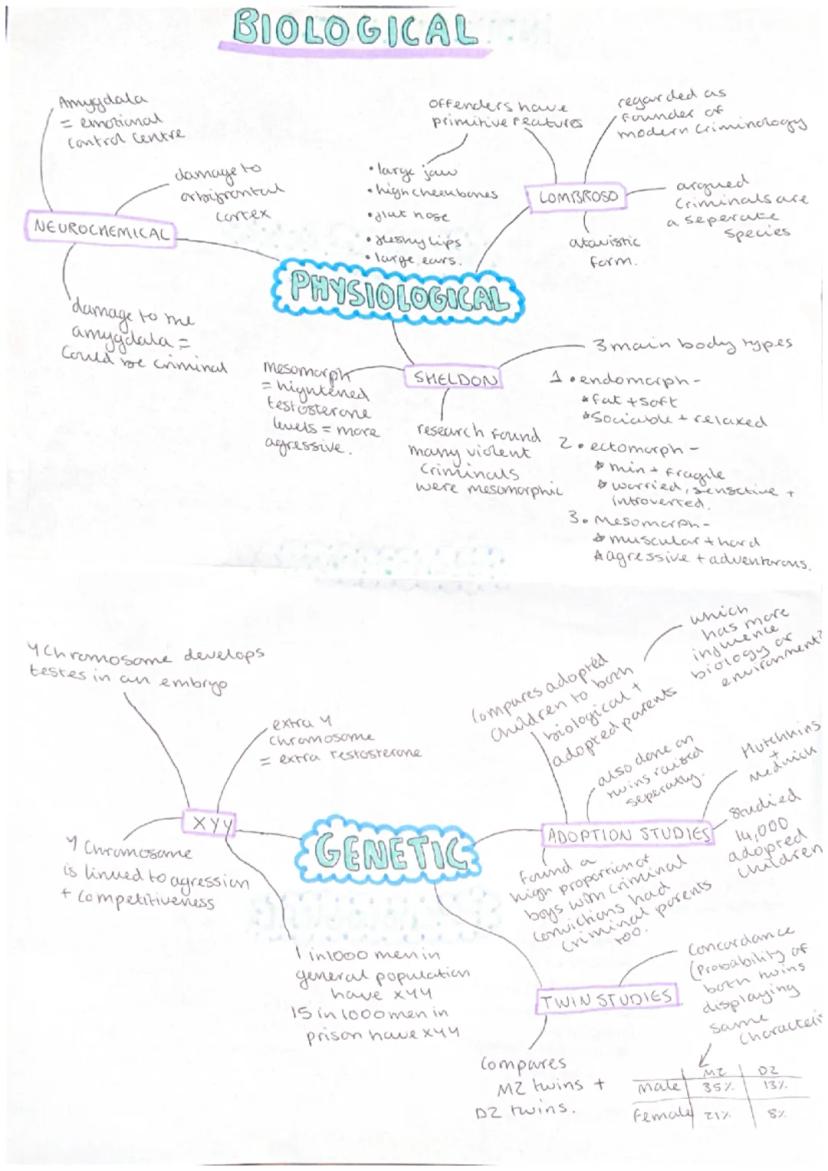 BIOLOGICAL
Amygdala
= emotional
control centre
damage to
orbifrontal
cortex
NEUROCHEMICAL
damage to the
amygdala =
could be criminal
offenders have
primitive features
• large jaw
• high cheekbones
• flat nose
• fleshy lips
• large ears.
regarded as
founder of
modern criminology
LOMBROSO
argued
criminals are
a seperate
species
atavistic
form.
PHYSIOLOGICAL
SHELDON
Mesomorph
= hightened
testosterone
levels = more
agressive.
research found
many violent
criminals
were mesomorphic
3 main body types
1 • endomorph -
* fat + soft
* sociable + relaxed
2. • ectomorph -
* thin + fragile
* worried, sensitive +
introverted.
3. Mesomorph -
* muscular + hard
* agressive + adventurous.
Y Chromosome develops
testes in an embryo
extra Y
chromosome
= extra testosterone
XYY
Y Chromosome
is linked to agression
+ competitiveness
1 in 1000 men in
general population
have XYY
15 in 1000 men in
prison have XYY
GENETIC
Compares adopted
children to both
biological +
adopted parents
which
has more
influence
biology or
environment?
also done on
twins raised
seperatly.
ADOPTION STUDIES
Hutchkins
+
Mednick
Studied
14,000
adopted
children
found a
high proportion of
boys with criminal
convictions had
criminal parents
too.
TWIN STUDIES
Concordance
(Probability of
both twins
displaying
same
Compares
MZ twins +
DZ twins.
MZ DZ
Male 35% 13%
Female 21% 8%